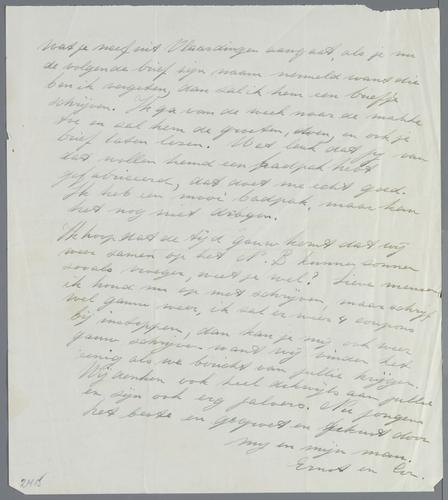 wat je neef uit Vlaardingen aangaat, als je nu
de volgende brief zijn naam vermeld want die
ben ik vergeten, dan zal ik hem een briefje
schrijven. Ik ga van de week naar de
toe en zal hem de groeten doen, en ook je
brief laten lezen. Wat leuk dat jij van
dat wollen hemd een badpak hebt
gefabriceerd, dat doet me echt goed.
Ik heb een mooi badpak, maar kan
het nog niet dragen.
Ik hoop dat de tijd gauw komt dat wij
weer samen op het N. B kunnen zonnen
zooals vroeger, weet je wel? Lieve mensen
ik houd nu op met schrijven, maar schrijf
wel gauw weer, ik zal er weer 4 coupons
bij instoppen, dan kan je mij ook weer
gauw schrijven want wij vinden het
eenig als we bericht van jullie krijgen.
Wij denken ook heel dikwijls aan jullie
en zijn ook erg jaloers. Nu jongens
het beste en gegroet en gekust door
mij en mijn man.
Ernst en
2415